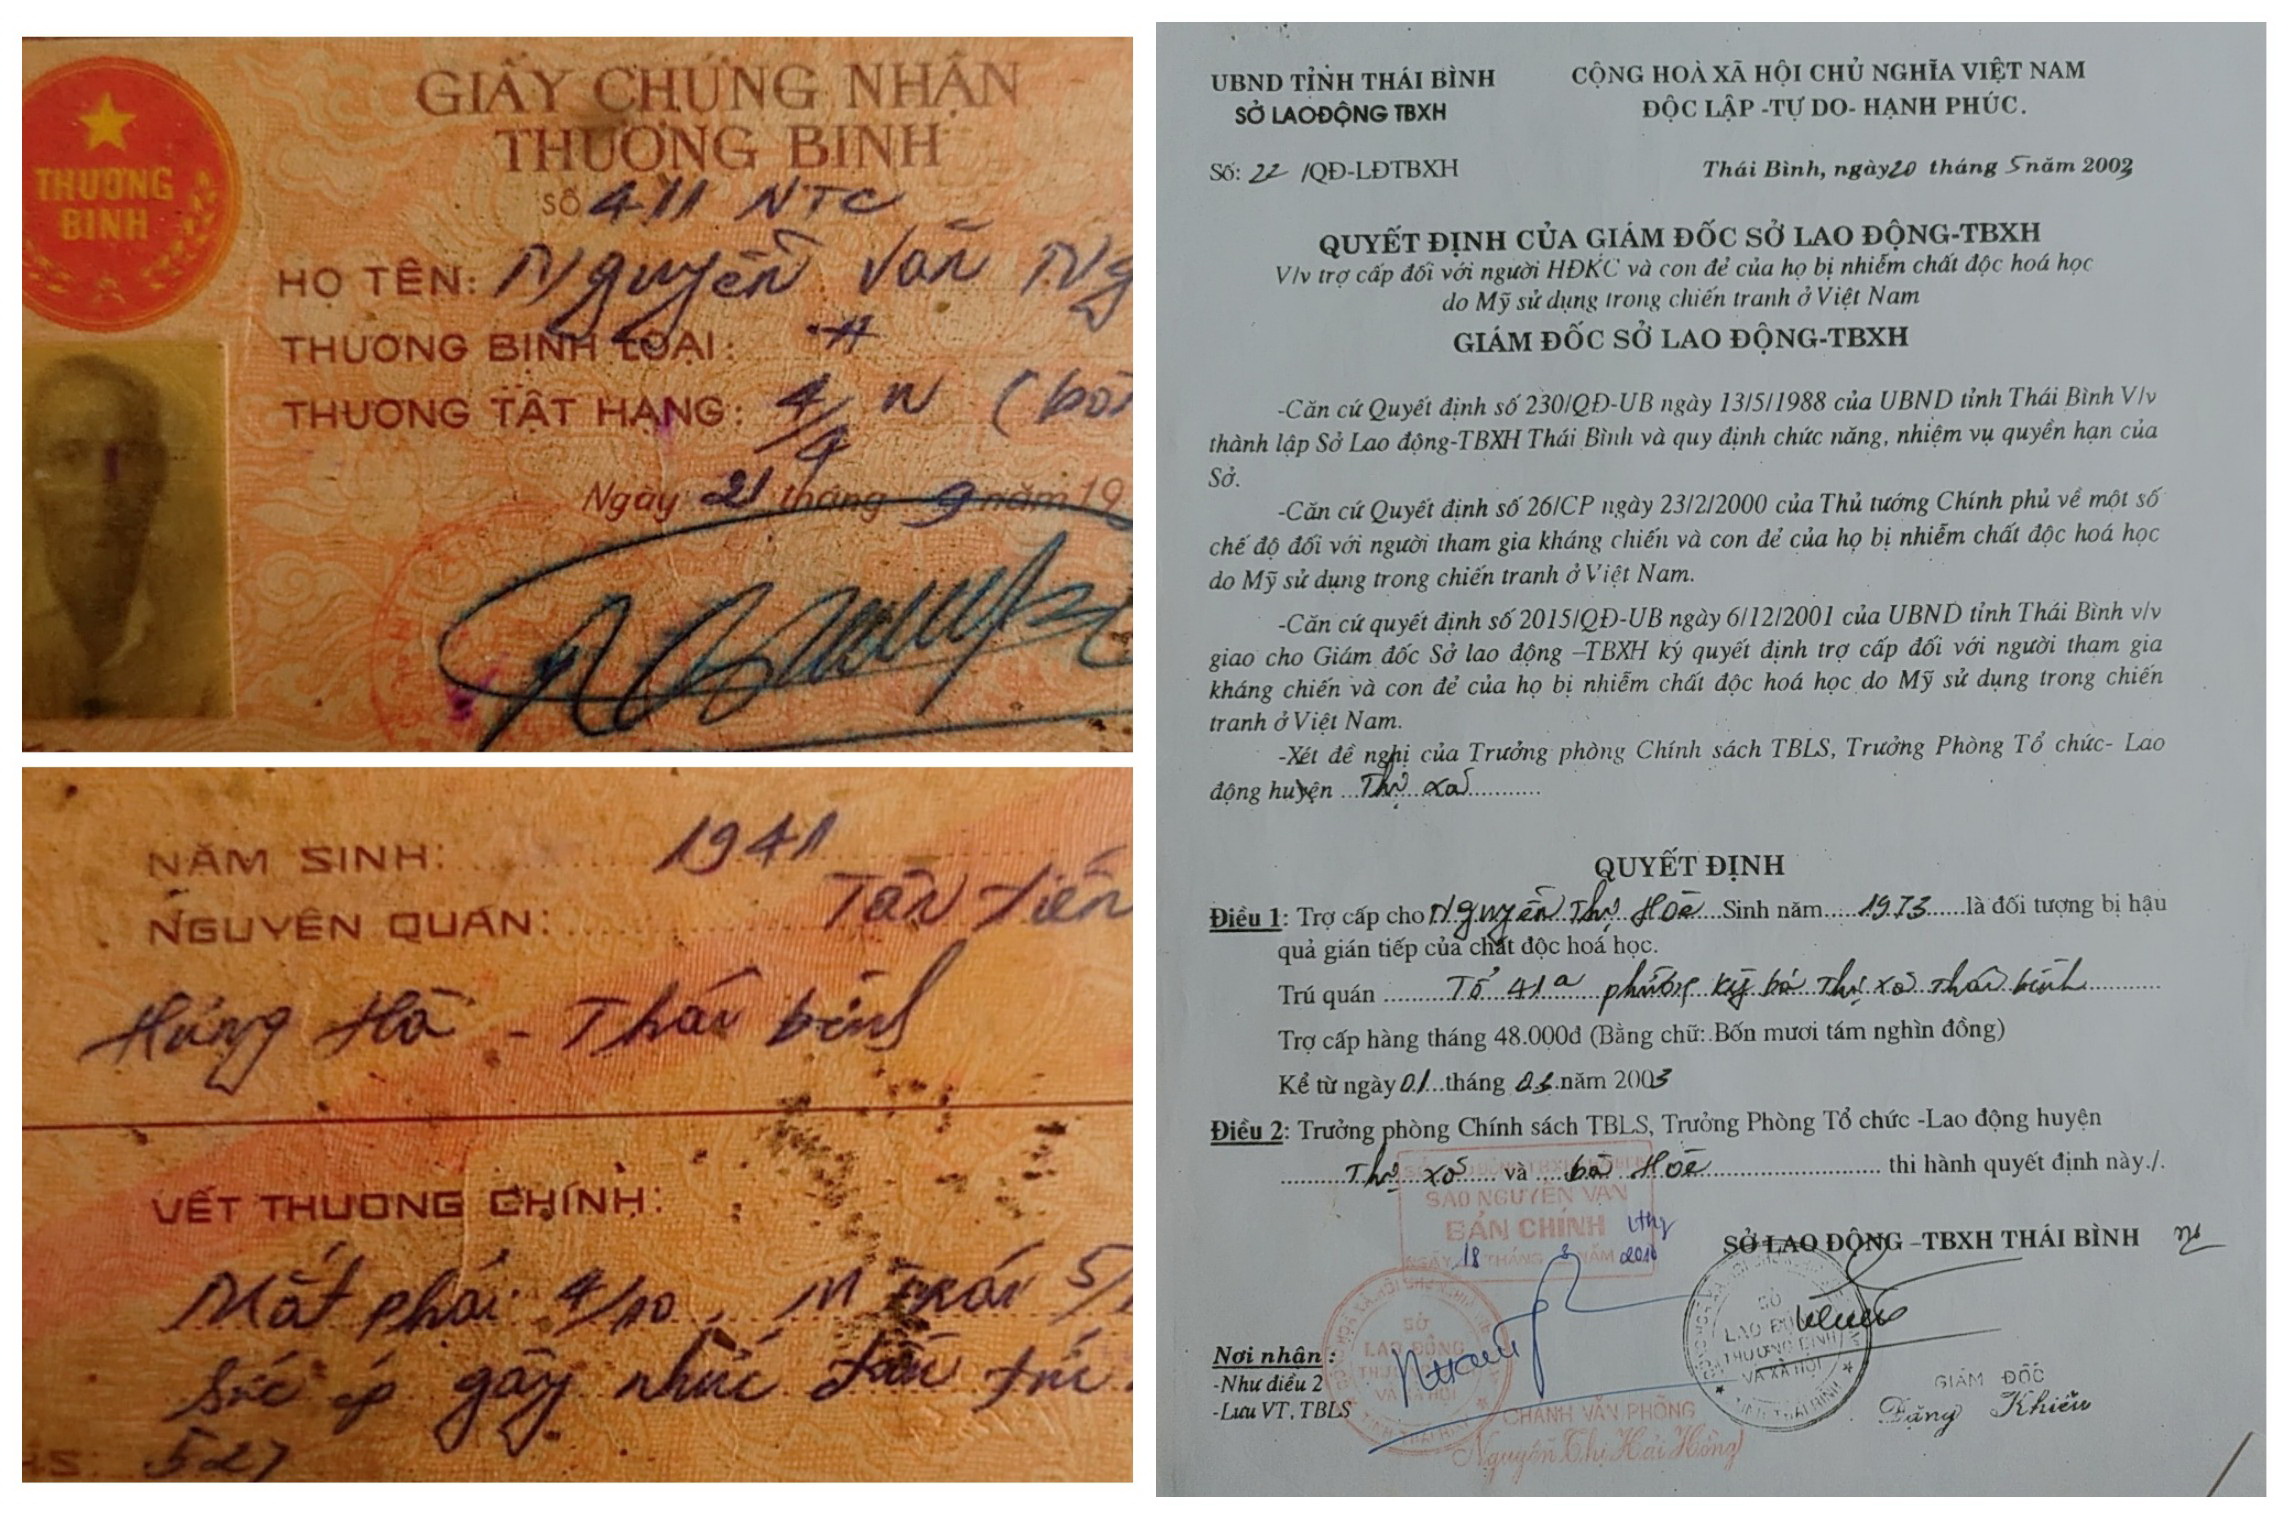 THƯƠNG
BINH
GIẤY CHỨNG NHẬN
THƯƠNG BINH
SỐ 411 NTC
HỌ TÊN: Nguyễn Văn Ng
THƯƠNG BINH LOẠI: A
THƯƠNG TẬT HẠNG: 4/4
Ngày 21 tháng 9 năm 19
NĂM SINH: 1941
NGUYÊN QUÁN: Tân Tiến
Hưng Hà - Thái bình
VẾT THƯƠNG CHÍNH:
Mắt phải 4/10, M trái 5/
Sức ép gây nhức đầu
527
UBND TỈNH THÁI BÌNH
SỞ LAOĐỘNG TBXH
CỘNG HOÀ XÃ HỘI CHỦ NGHĨA VIỆT NAM
ĐỘC LẬP -TỰ DO- HẠNH PHÚC.
Số: 22 /QĐ-LĐTBXH
Thái Bình, ngày 20 tháng 5 năm 2003
QUYẾT ĐỊNH CỦA GIÁM ĐỐC SỞ LAO ĐỘNG-TBXH
V/v trợ cấp đối với người HĐKC và con đẻ của họ bị nhiễm chất độc hoá học
do Mỹ sử dụng trong chiến tranh ở Việt Nam
GIÁM ĐỐC SỞ LAO ĐỘNG-TBXH
-Căn cứ Quyết định số 230/QĐ-UB ngày 13/5/1988 của UBND tỉnh Thái Bình V/v
thành lập Sở Lao động-TBXH Thái Bình và quy định chức năng, nhiệm vụ quyền hạn của
Sở.
-Căn cứ Quyết định số 26/CP ngày 23/2/2000 của Thủ tướng Chính phủ về một số
chế độ đối với người tham gia kháng chiến và con đẻ của họ bị nhiễm chất độc hoá học
do Mỹ sử dụng trong chiến tranh ở Việt Nam.
-Căn cứ quyết định số 2015/QĐ-UB ngày 6/12/2001 của UBND tỉnh Thái Bình v/v
giao cho Giám đốc Sở lao động –TBXH ký quyết định trợ cấp đối với người tham gia
kháng chiến và con đẻ của họ bị nhiễm chất độc hoá học do Mỹ sử dụng trong chiến
tranh ở Việt Nam.
-Xét đề nghị của Trưởng phòng Chính sách TBLS, Trưởng Phòng Tổ chức- Lao
động huyện ...Thị xã...........
QUYẾT ĐỊNH
Điều 1: Trợ cấp cho Nguyễn Thị Hoè Sinh năm 1973 là đối tượng bị hậu
quả gián tiếp của chất độc hoá học.
Trú quán Tổ 41a phường kỳ bá Thị xã Thái bình
Trợ cấp hàng tháng 48.000đ (Bằng chữ: Bốn mươi tám nghìn đồng)
Kể từ ngày 01 tháng năm 2003
Điều 2: Trưởng phòng Chính sách TBLS, Trưởng Phòng Tổ chức -Lao động huyện
Thị xã và bà Hoè thi hành quyết định này./.
SAO NGUYÊN VĂN
BẢN CHÍNH
NGÀY 18 THÁNG NĂM
SỞ LAO ĐỘNG –TBXH THÁI BÌNH
SỞ
LAO ĐỘNG
THƯƠNG BINH
VÀ XÃ HỘI
TỈNH THÁI BÌNH
SỞ
LAO ĐỘNG
THƯƠNG BINH
VÀ XÃ HỘI
TỈNH THÁI BÌNH
Nơi nhận:
-Như điều 2
-Lưu VT, TBLS
GIÁM ĐỐC
Đặng Khiêu
CHÁNH VĂN PHÒNG
Nguyễn Thị Hải Hồng